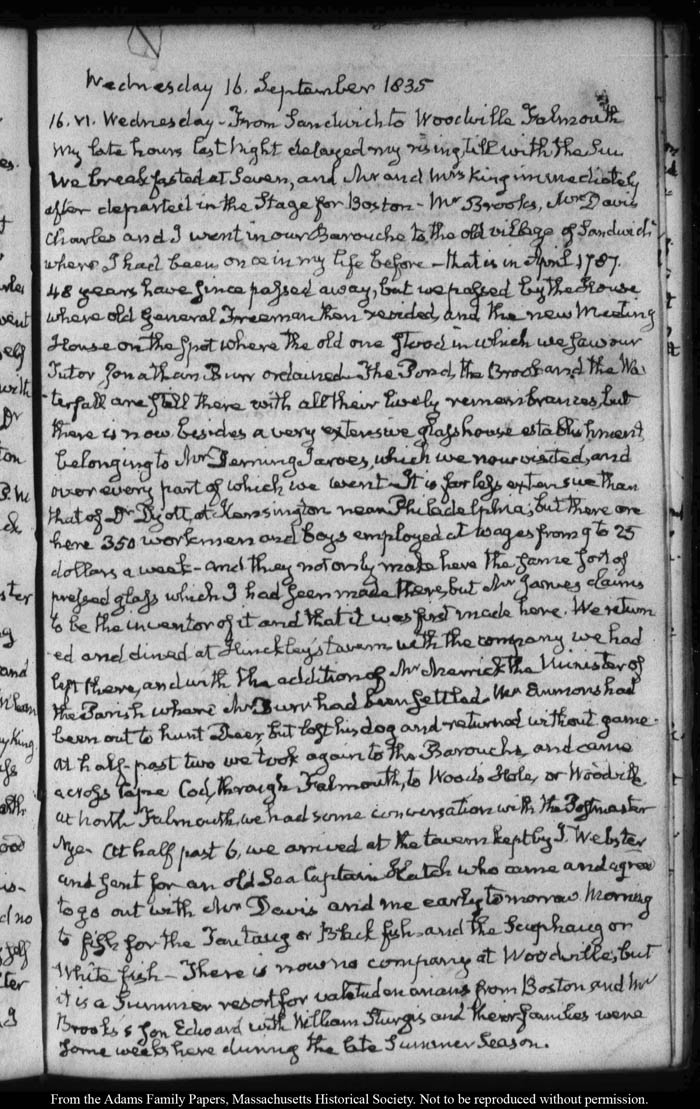 Wednesday 16. September 1835
16. VI. Wednesday - From Sandwich to Woodville Falmouth
My late hours last Night delayed my rising, till with the Sun
We breakfasted at Seven, and Mr and Mrs King immediately
after departed in the Stage for Boston - Mr Brooks, Mr Davis
Charles and I went in our Barouche to the old village of Sandwich
where I had been once in my life before - that is in April 1787.
48 years have since passed away, but we passed by the House
where old General Freeman then resided, and the new Meeting
House on the spot where the old one stood in which we saw our
Tutor Jonathan Burr ordained. The Pond, the Brook and the Wa-
-terfall are still there with all their lively remembrances, but
there is now besides a very extensive glass house establishment
belonging to Mr Deming Jarves, which we now visited, and
over every part of which we went - It is far less extensive than
that of Dr Dyott, at Kensington near Philadelphia; but there are
here 350 workmen and boys employed at wages from 9 to 25
dollars a week - and they not only make here the same sort of
pressed glass which I had seen made there, but Mr Jarves claims
to be the inventor of it and that it was first made here. We return
-ed and dined at Hinckley's tavern with the company we had
left there, and with the addition of Mr Merrick the Minister of
the Parish where Mr Burr had been settled. Mr Emmons had
been out to hunt Deer, but lost his dog and returned without game -
At half past two we took again to the Barouche, and came
across Cape Cod, through Falmouth, to Wood's Hole, or Woodville
at North Falmouth, we had some conversation with the Postmaster
Nye - At half past 6, we arrived at the tavern kept by J. Webster
and sent for an old Sea Captain Hatch who came and agreed
to go out with Mr Davis and me early tomorrow Morning
to fish for the Tautaug or Black fish - and the Scuphaug or
White fish - There is now no company at Woodville, but
it is a Summer resort for valetudinarians from Boston and Mr
Brooks's Son Edward with William Sturgis and their families were
some weeks here during the late Summer Season.
From the Adams Family Papers, Massachusetts Historical Society. Not to be reproduced without permission.